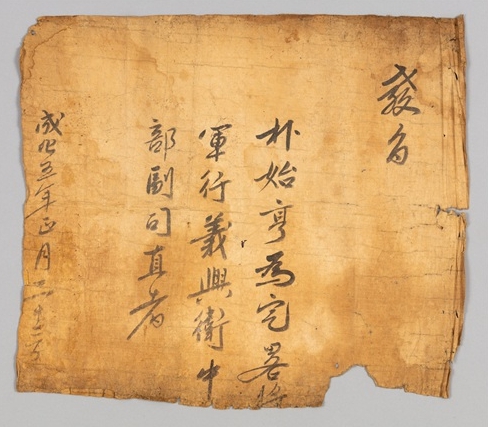 教旨
朴始亨為定畧將
軍行義興衛中
部副司直者
成化五年正月二十二日